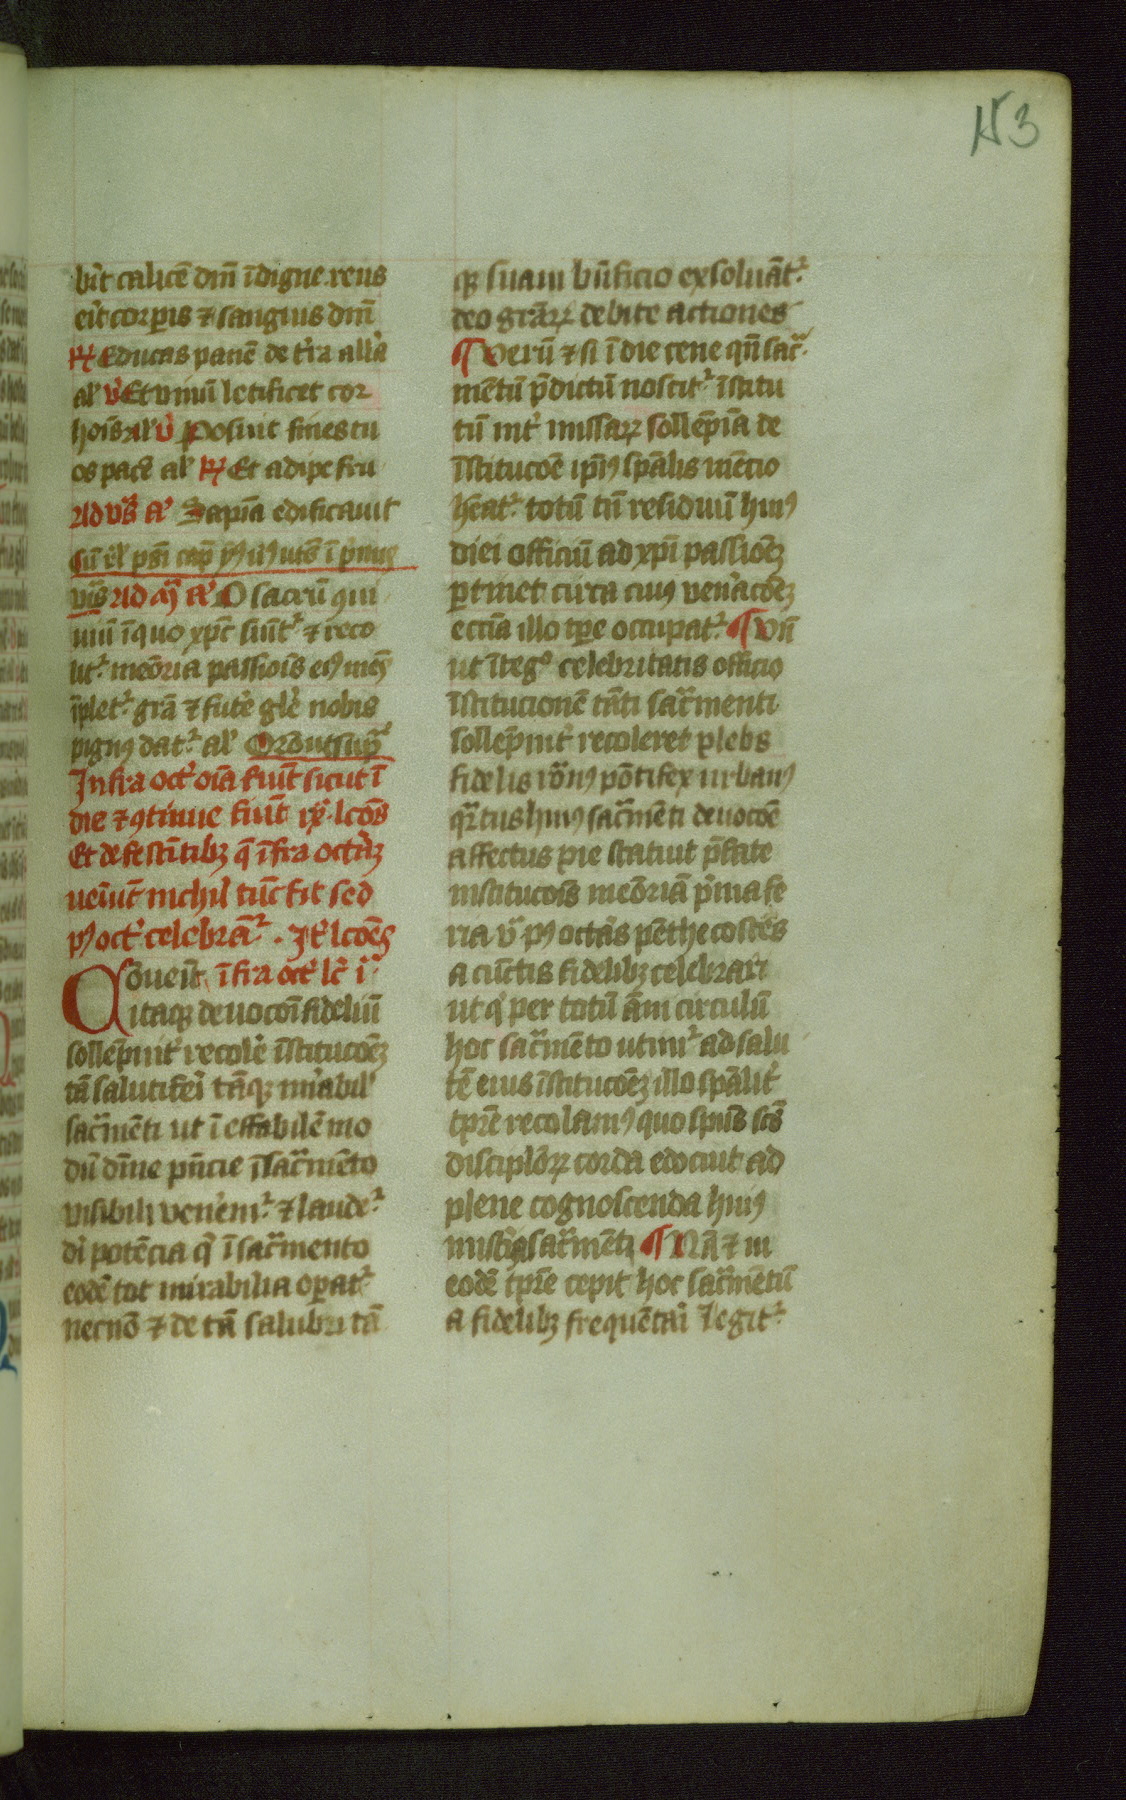 153
bit calicē dm̄ īdigne. reus
eit corpis ⁊ sangius dm̄
Educas panē de t̓ra all̓a
al' v̓ Et vinū letificet cor
hoīs al' v̓ Posuit fines tu
os pacē al' Et adipe fru
Ad vs̄ a' Sapiā edificauit
O sacrū ꝯui
uiū ī quo xp̄c sumt᷑ ⁊ reco
lit᷑ meōria passiōis eiꝰ mēs
īplet᷑ grā ⁊ fut̓e gl̓e nobis
pignꝰ dat᷑ al'
Infra oct̓ oīa fiūt sicut ī
die ⁊ ꝯtinue fiūt ix. lcōs
Et de festītibꝫ q̄ īfra octāꝫ
ueīut nichil tūc fit sed
pꝰ oct̓ celebrāt᷑. It̓ lcōes
Cōuenīt īfra oct̓ lc̄ i᷑
itaqꝫ deuocōī fidelium
sollēpnit̓ recol̓e īstitucōeꝫ
tā salutiferi tāqꝫ mīabil'
sac̄mēti ut ī effabilē mo
dū dīne pn̄cie ī sac̄mēto
visibili ven̓em᷑ ⁊ laude᷑
di potēcia q̓ ī sac̄mento
eodē tot mirabilia opat᷑
necnō ⁊ de tā salubri tā
qꝫ suaui bn̄ficio exsoluāt᷑
deo grāꝝ debite actiones
¶ Verū ⁊ si ī die cene qn̄ sac̄
mentū p̄dictū noscit᷑ īstitu
tū int̓ missaꝝ sollēpnia de
īstitucōe ipīꝰ spālis mēcio
hēat᷑ totū tn̄ residuū huiꝰ
diei officiū ad xp̄i passiōeꝫ
ptinet circa cuiꝰ ven̓acōeꝫ
eccīa illo tpe occupat᷑ ¶ Vn̄
ut īteg° celebritatis officio
īstitucionē tāti sac̄menti
sollēpnit̓ recoleret plebs
fidelis rōnꝰ pōtifex urbanꝰ
q̄rtus huiꝰ sac̄mēti deuocōe
affectus pie statuit p̄fate
institucōis meōriā p̓ma fe
ria v̄ pꝰ octās pēthecostēs
a cūctis fidelibꝫ celebrari
ut q̓ per totū ām circulū
hoc sac̄mēto utim᷑ ad salu
tē eius īstitucōeꝫ illo spālit̓
tpre recolamꝰ quo spūs scs̄
disciploꝝ corda edocuit ad
plene cognoscenda huiꝰ
mist̓ia sac̄mēti ¶ Nā ⁊ in
eodē tpre cepit hoc sac̄mētū
a fidelibꝫ frequētari Legit᷑